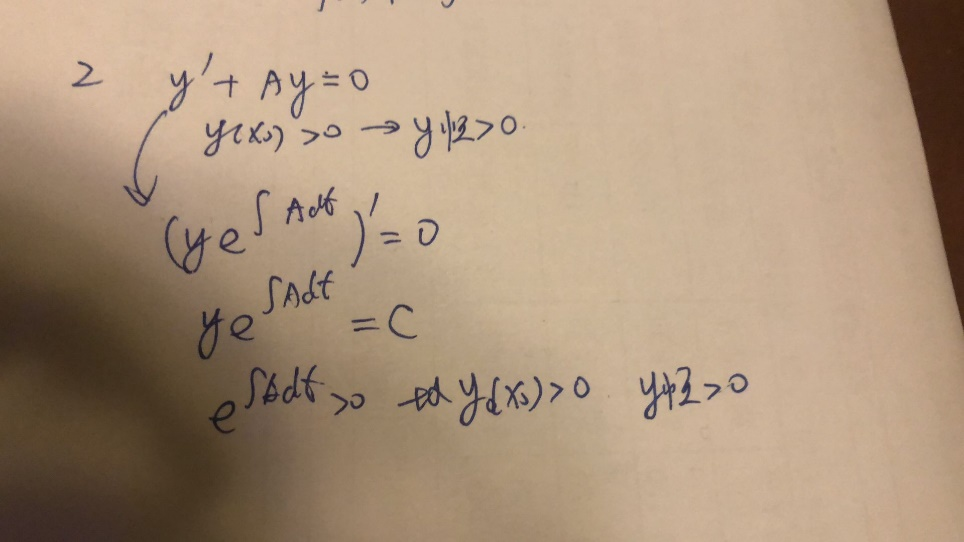 2 y' + Ay = 0
y(x₀) > 0 → y恒 > 0.
(ye^{∫Adt})' = 0
ye^{∫Adt} = C
e^{∫Adt} > 0 由 y(x₀) > 0 y恒 > 0